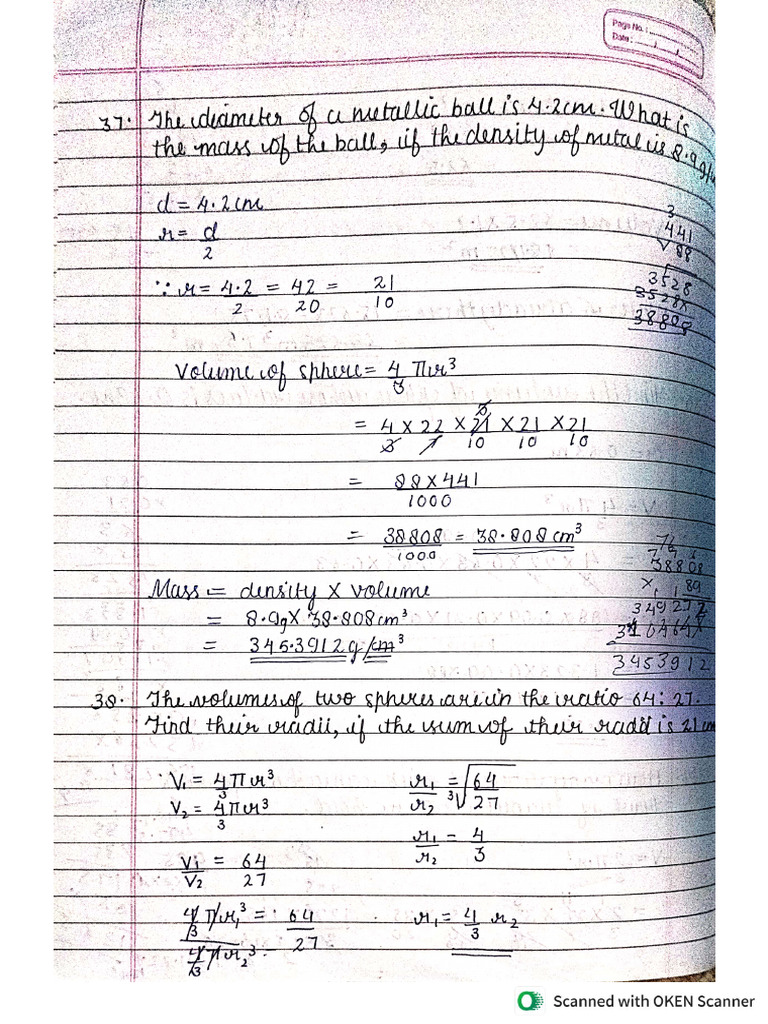 Page No.:
Date:
37. The diameter of a metallic ball is 4.2cm. What is
the mass of the ball, if the density of metal is 8.9g/
d = 4.2cm
r = d/2
∵ r = 4.2/2 = 42/20 = 21/10
441
× 88
3528
3528×
38808
Volume of sphere = 4/3 πr³
= 4/3 × 22/7 × 21/10 × 21/10 × 21/10
= 88×441/1000
= 38808/1000 = 38.808 cm³
Mass = density × volume
= 8.9g × 38.808cm³
= 345.3912 g/cm³
38808
× 89
349272
310464×
3453912
38. The volumes of two spheres are in the ratio 64:27.
Find their radii, if the sum of their radii is 21 cm
∵ V₁ = 4/3 πr³
V₂ = 4/3 πr³
V₁/V₂ = 64/27
4/3 πr₁³ / 4/3 πr₂³ = 64/27
r₁/r₂ = ³√64/27
r₁/r₂ = 4/3
r₁ = 4/3 r₂
Scanned with OKEN Scanner